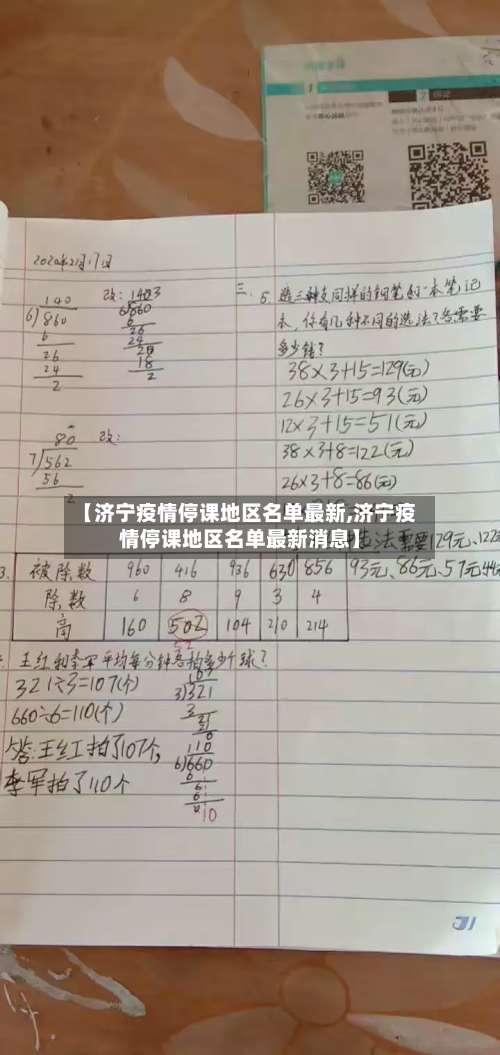 2020年2月17日
140
6)860
6
26
24
2
改:1403
6)860
6
26
24
20
18
2
80
7)562
56
2
改:
三、5.选三种支同样的钢笔和一本笔记
本,你有几种不同的选法?各需要
多少钱?
38×3+15=129(元)
26×3+15=93(元)
12×3+15=51(元)
38×3+8=122(元)
26×3+8=86(元)
【济宁疫情停课地区名单最新,济宁疫
情停课地区名单最新消息】
法需要129元、122
93元、86元、57元
3.
被除数 960 416 936 630 856
除数 6 8 9 3 4
商 160 502 104 210 214
52
王红和李军平均每分钟各拍多少个球?
321÷3=107(个)
660÷6=110(个)
答:王红拍了107个,
李军拍了110个
107
3)321
3
21
0
110
6)660
6
6
6
10